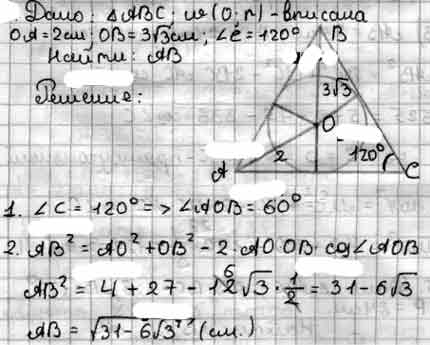 Дано: ΔABC; w(O; r) - вписана
OA = 2см; OB = 3√3см; ∠C = 120°
Найти: AB
Решение:
B
3√3
O
2
120°
A
C
1. ∠C = 120° => ∠AOB = 60°
2. AB² = AO² + OB² - 2·AO·OB·cos∠AOB
6
AB² = 4 + 27 - 12√3 · 1/2 = 31 - 6√3
AB = √31 - 6√3 (см.)